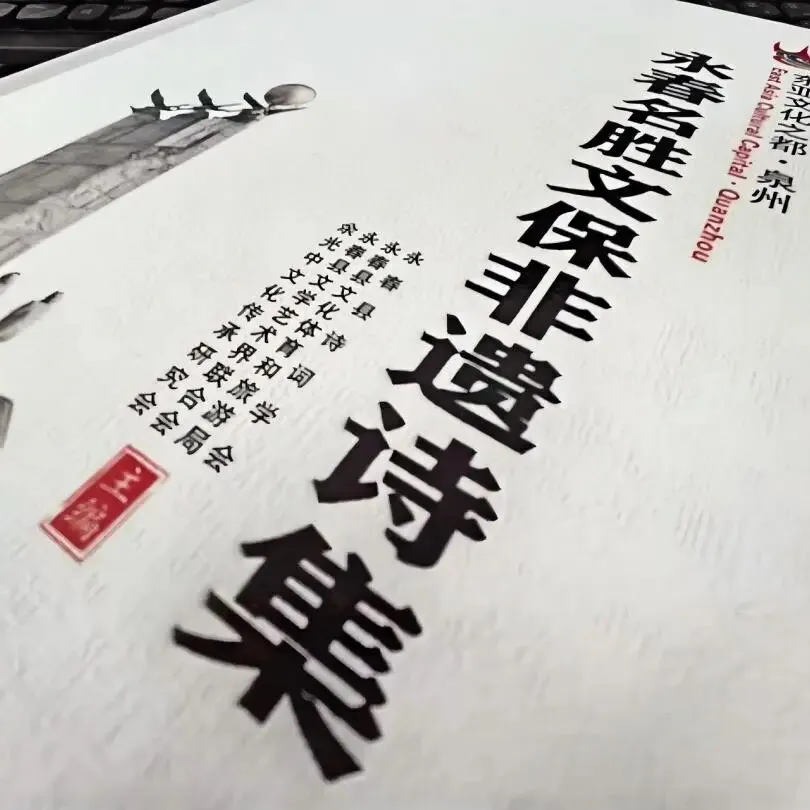 东亚文化之都·泉州
East Asia Cultural Capital · Quanzhou
永春名胜文保非遗诗集
永春县诗词学会
永春县文化体育和旅游局
永春县文学艺术界联合会
余光中文化传承研究会
主编